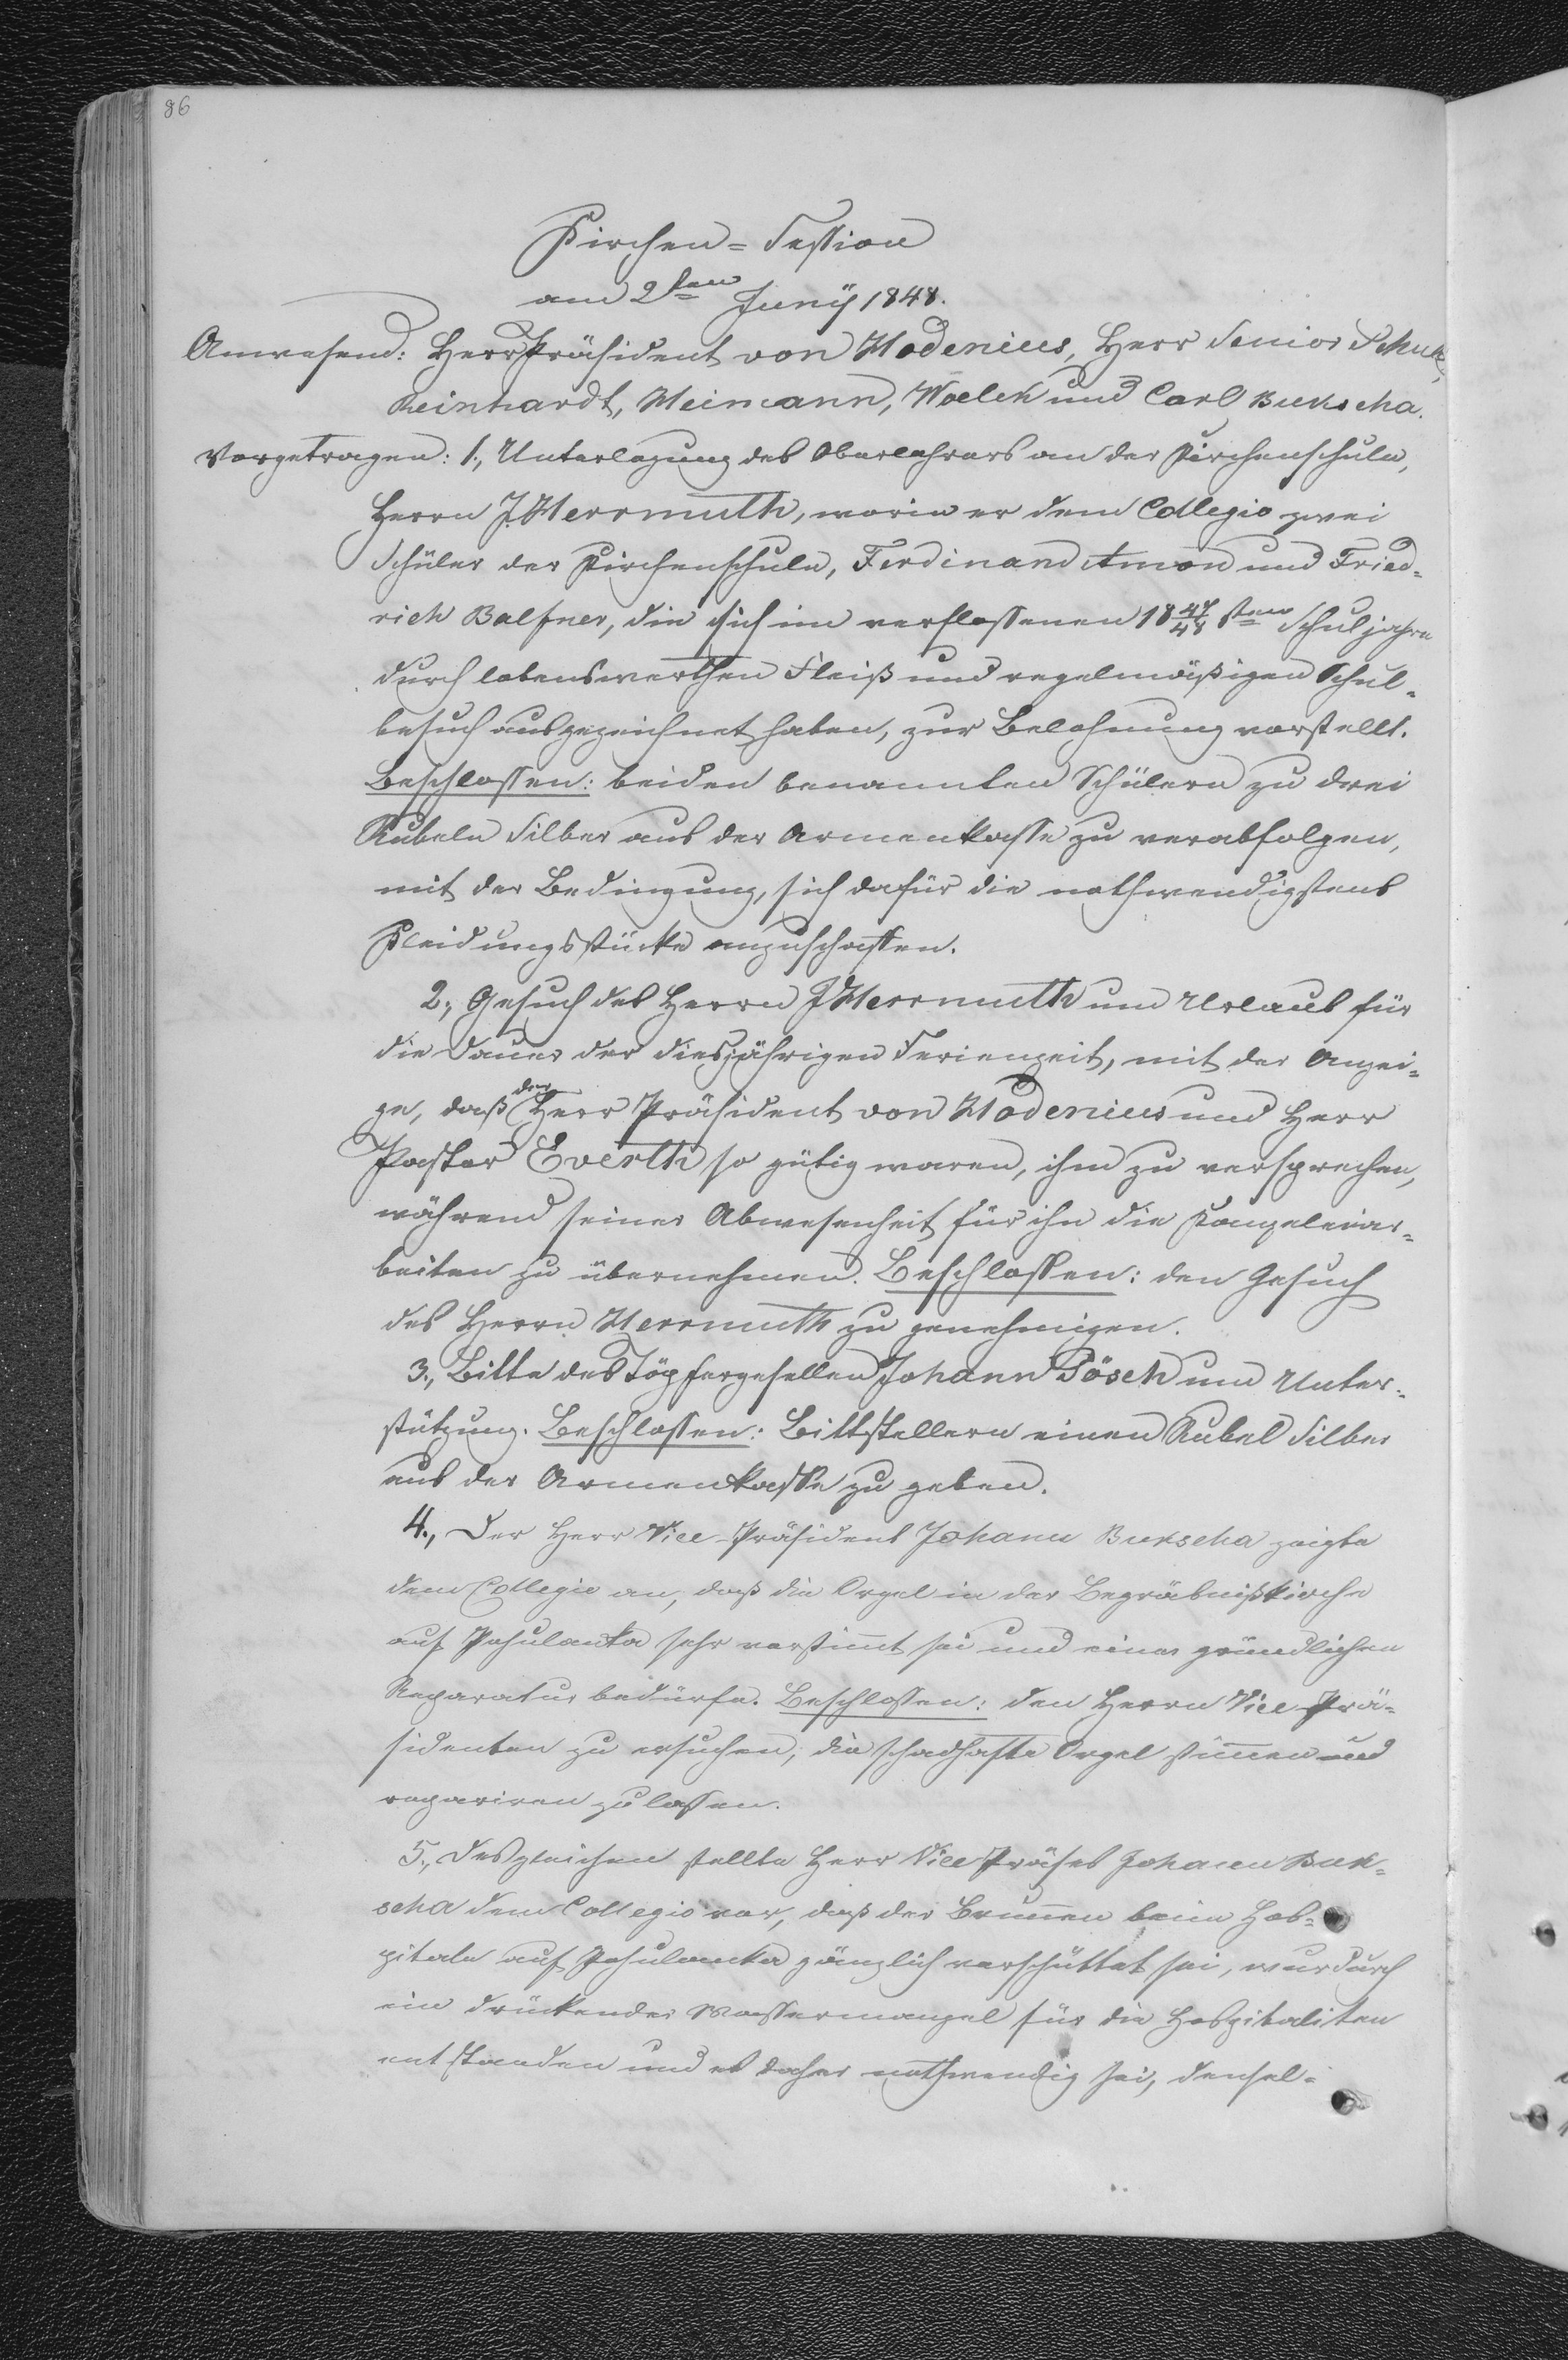 86
Kirchen=Session
am 2ten Junÿ 1848.
Anwesend: Herr Präsident von Hodenius, Herr Senior
Reinhardt, Heimann, Woelck und Carl Bukscha.
Vorgetragen: 1., Unterlegung des Oberlehrers an der Kirchenschule,
Herrn J. Herrmuth, worin er dem Collegio zwei
Schüler der Kirchenschule, Ferdinand Amon und Fried=
rich Balfner, die sich im verflossenen 18 47/48 sten Schuljahre
durch lobenswerthen Fleiß und regelmäßigen Schul=
besuch ausgezeichnet haben, zur Belohnung vorstellt.
Beschlossen: beiden benannten Schülern zu drei
Rubeln Silber aus der Armenkasse zu verabfolgen,
mit der Bedingung, sich dafür die nothwendigstens
Kleidungsstücke anzuschaffen.
2., Gesuch des Herrn J Herrmuth um Urlaub für
die Dauer der diesjährigen Ferienzeit, mit der Anzei=
ge, daß der Herr Präsident von Hodenius und Herr
Pastor Everth so gütig waren, ihm zu versprechen,
während seiner Abwesenheit für ihn die Kanzeleiar=
beiten zu übernehmen. Beschlossen: den Gesuch
des Herrn Herrmuth zu genehmigen.
3., Bitte des Töpfergesellen Johann Pösch um Unter=
stützung. Beschlossen: Bittstellern einen Rubel Silber
aus der Armenkasse zu geben.
4., Der Herr Vice-Präsident Johann Bukscha zeigte
dem Collegio an, daß die Orgel in der Begräbnißkirche
auf Pohulanka sehr verstimt sei und einer gründlichen
Reparatur bedürfe. Beschlossen: den Herrn Vice-Prä=
sidenten zu ersuchen, die schadhafte Orgel stimen und
repariren zu lassen.
5., Desgleichen stellte Herr Vice Präses Johann Buk=
scha dem Collegio vor, daß der Brunen beim Hos=
pitale auf Pohulanka gänzlich verschüttet sei, wurdurch
ein drückender Wassermangel für die Hospitaliten
entstanden und es daher nothwendig sei, densel=